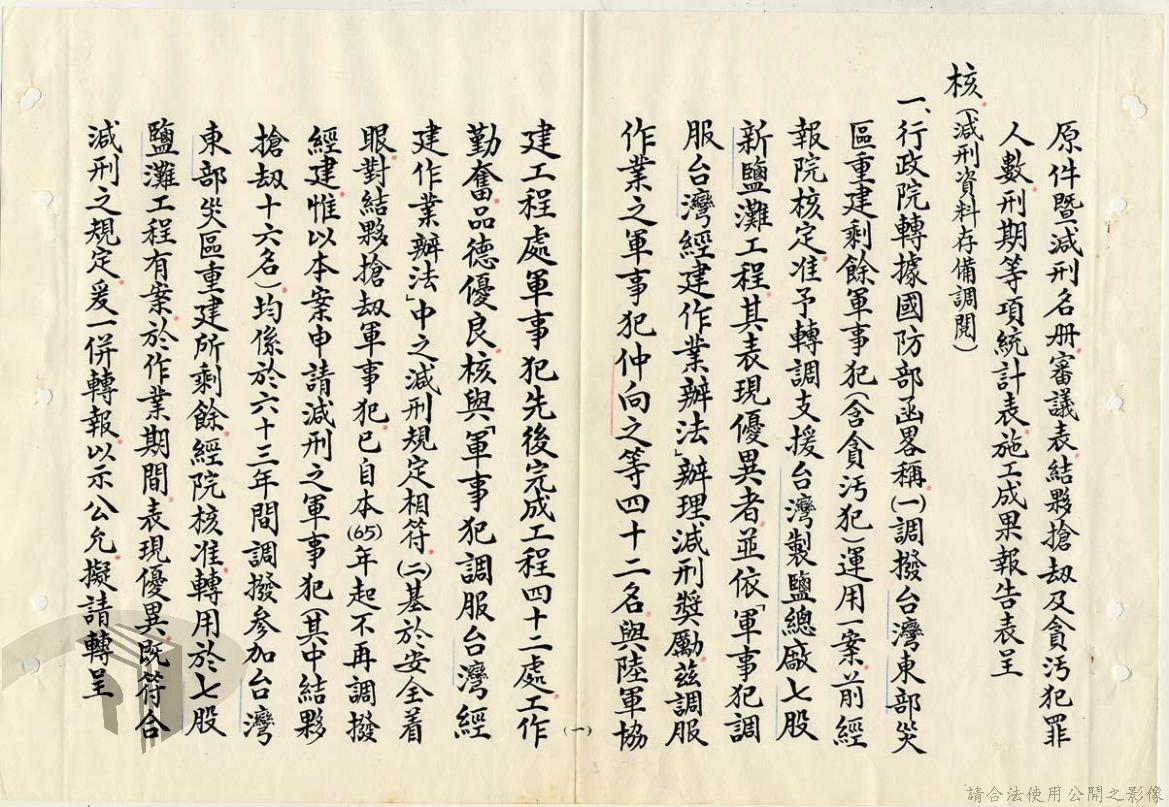 原件暨減刑名册審議表結夥搶劫及貪污犯罪
人數刑期等項統計表施工成果報告表呈
核(減刑資料存備調閱)
一、行政院轉據國防部函畧稱(一)調撥台灣東部災
區重建剩餘軍事犯(含貪污犯)運用一案前經
報院核定准予轉調支援台灣製鹽總廠七股
新鹽灘工程其表現優異者並依「軍事犯調
服台灣經建作業辦法」辦理減刑獎勵茲調服
作業之軍事犯仲向之等四十二名與陸軍協
(一)
建工程處軍事犯先後完成工程四十二處工作
勤奮品德優良核與「軍事犯調服台灣經
建作業辦法」中之減刑規定相符(二)基於安全着
眼對結夥搶劫軍事犯已自本(65)年起不再調撥
經建惟以本案申請減刑之軍事犯(其中結夥
搶劫十六名)均係於六十三年間調撥參加台灣
東部災區重建所剩餘經院核准轉用於七股
鹽灘工程有案於作業期間表現優異既符合
減刑之規定爰一併轉報以示公允擬請轉呈
請合法使用公開之影像